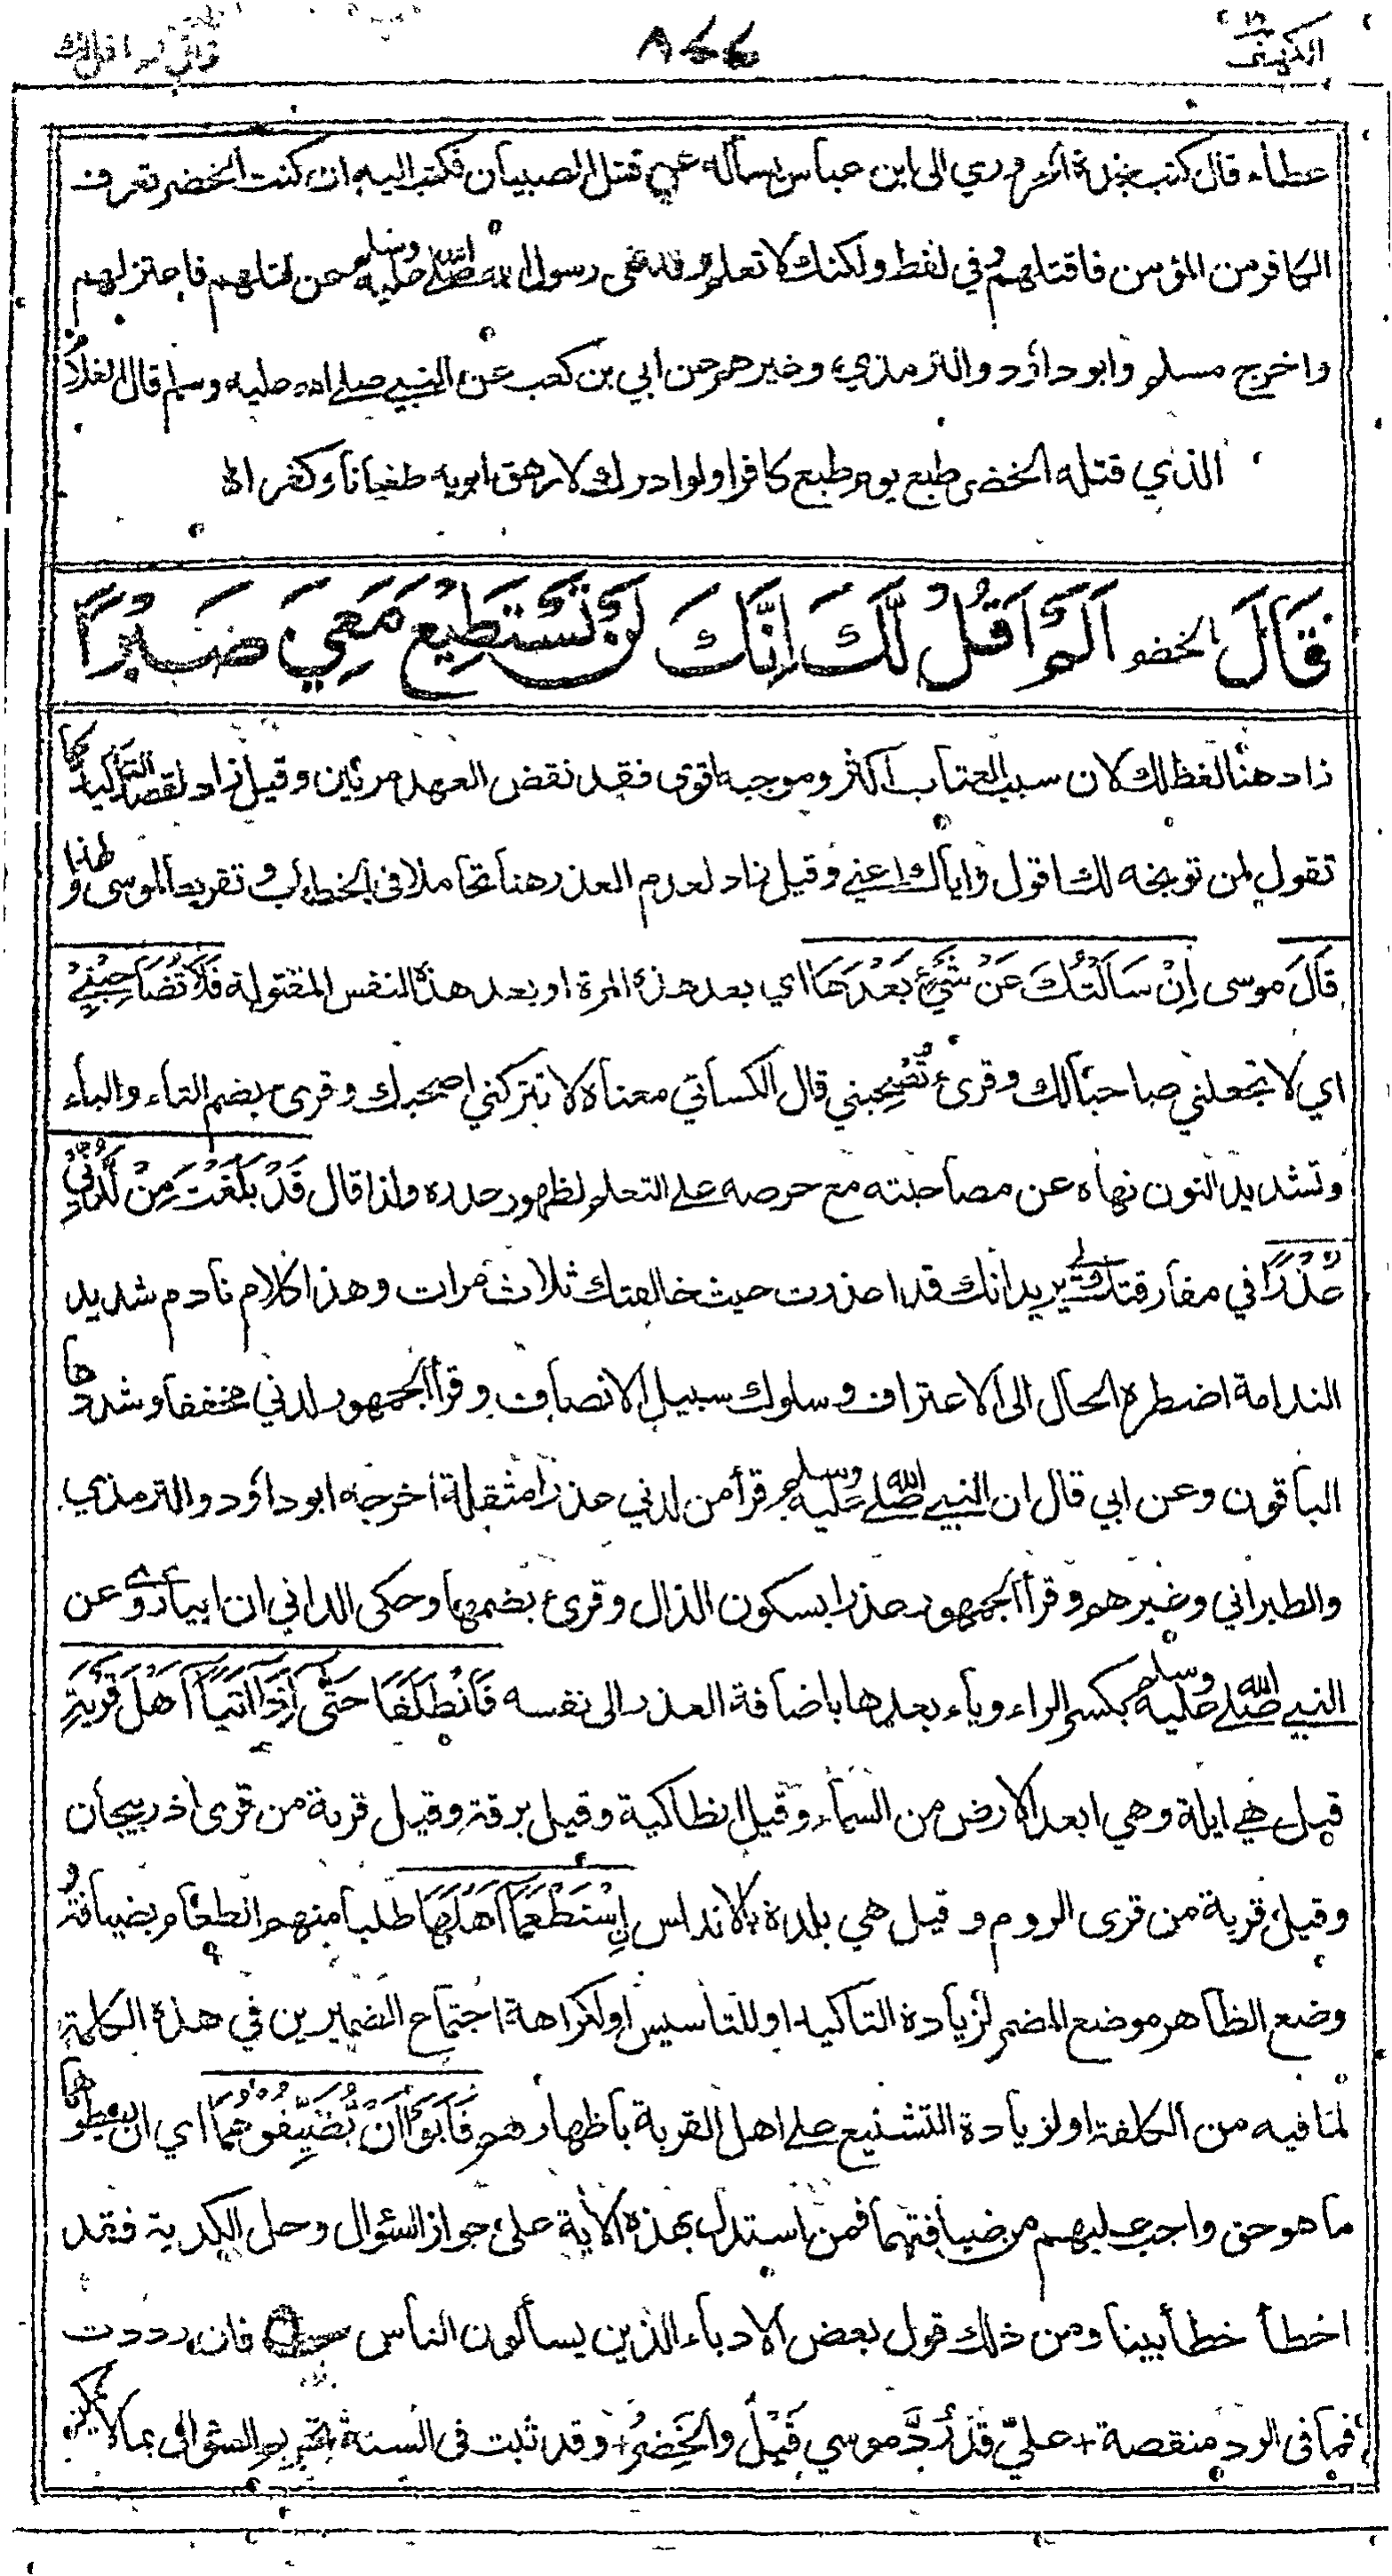 الكهف ١٨
٨٤٤
عطاء قال كتب نجدة الحروري الى ابن عباس يسأله عن قتل الصبيان فكتب اليه ان كنت الخضر تعرف
الكافر من المؤمن فاقتلهم وفي لفظ ولكنك لا تعلم وقد نهى رسول الله صلى الله عليه وسلم عن قتلهم فاعتزلهم
واخرج مسلم وابو داؤد والترمذي وغيرهم عن ابي بن كعب عن النبي صلى الله عليه وسلم قال الغلام
الذي قتله الخضر طبع يوم طبع كافرا ولو ادرك لارهق ابويه طغيانا وكفرا
قَالَ الخضر اَلَمْ اَقُلْ لَّكَ اِنَّكَ لَنْ تَسْتَطِيْعَ مَعِيَ صَبْرًا
زاد هنا لفظ لك لان سبب العتاب اكثر وموجبه اقوى فقد نقض العهد مرتين وقيل زاد لقصد التاكيد كما
تقول لمن توبخه لك اقول واياك اعني وقيل زاد لعدم العذر هنا تحاملا في الخطاب وتقريعا لموسى ولهذا
قَالَ موسى اِنْ سَاَلْتُكَ عَنْ شَيْءٍ بَعْدَهَا اي بعد هذه المرة او بعد هذه النفس المقتولة فَلَا تُصَاحِبْنِيْ
اي لا تجعلني صاحبا لك وقرئ تُصْحِبني قال الكسائي معناه لا تتركني اصحبك وقرئ بضم التاء والباء
وتشديد النون نهاه عن مصاحبته مع حرصه على التعلم لظهور عذره ولذا قال قَدْ بَلَغْتَ مِنْ لَّدُنِّيْ
عُذْرًا في مفارقتك يريد انك قد اعذرت حيث خالفتك ثلاث مرات وهذا كلام نادم شديد
الندامة اضطره الحال الى الاعتراف وسلوك سبيل الانصاف وقرأ الجمهور لدني مخففا وشددها
الباقون وعن ابي قال ان النبي صلى الله عليه وسلم قرأ من لدني عذرا مثقلة اخرجه ابو داؤد والترمذي
والطبراني وغيرهم وقرأ الجمهور عذرا بسكون الذال وقرئ بضمها وحكى الداني ان ابيا روى عن
النبي صلى الله عليه وسلم بكسر الراء وياء بعدها باضافة العذر الى نفسه فَانْطَلَقَا حَتّٰى اِذَا اَتَيَا اَهْلَ قَرْيَةِ
قيل هي ايلة وهي ابعد الارض من السماء وقيل انطاكية وقيل برقة وقيل قرية من قرى اذربيجان
وقيل قرية من قرى الروم وقيل هي بلدة بالاندلس اِسْتَطْعَمَا اَهْلَهَا طلبا منهم الطعام بضيافة و
وضع الظاهر موضع المضمر لزيادة التاكيد او للتاسيس او لكراهة اجتماع الضميرين في هذه الكلمة
لما فيه من الكلفة او لزيادة التشنيع على اهل القرية باظهارهم فَاَبَوْا اَنْ يُّضَيِّفُوْهُمَا اي ان يعطوهما
ما هو حق واجب عليهم من ضيافتهما فمن استدل بهذه الآية على جواز السؤال وحل الكدية فقد
اخطأ خطأ بينا ومن ذلك قول بعض الادباء الذين يسألون الناس فان رددت
فما في الرد منقصة + عليّ قد رُدَّ موسى قَبْلُ والخَضِرُ + وقد ثبت في السنة تحريم السؤال بما لا يمكن